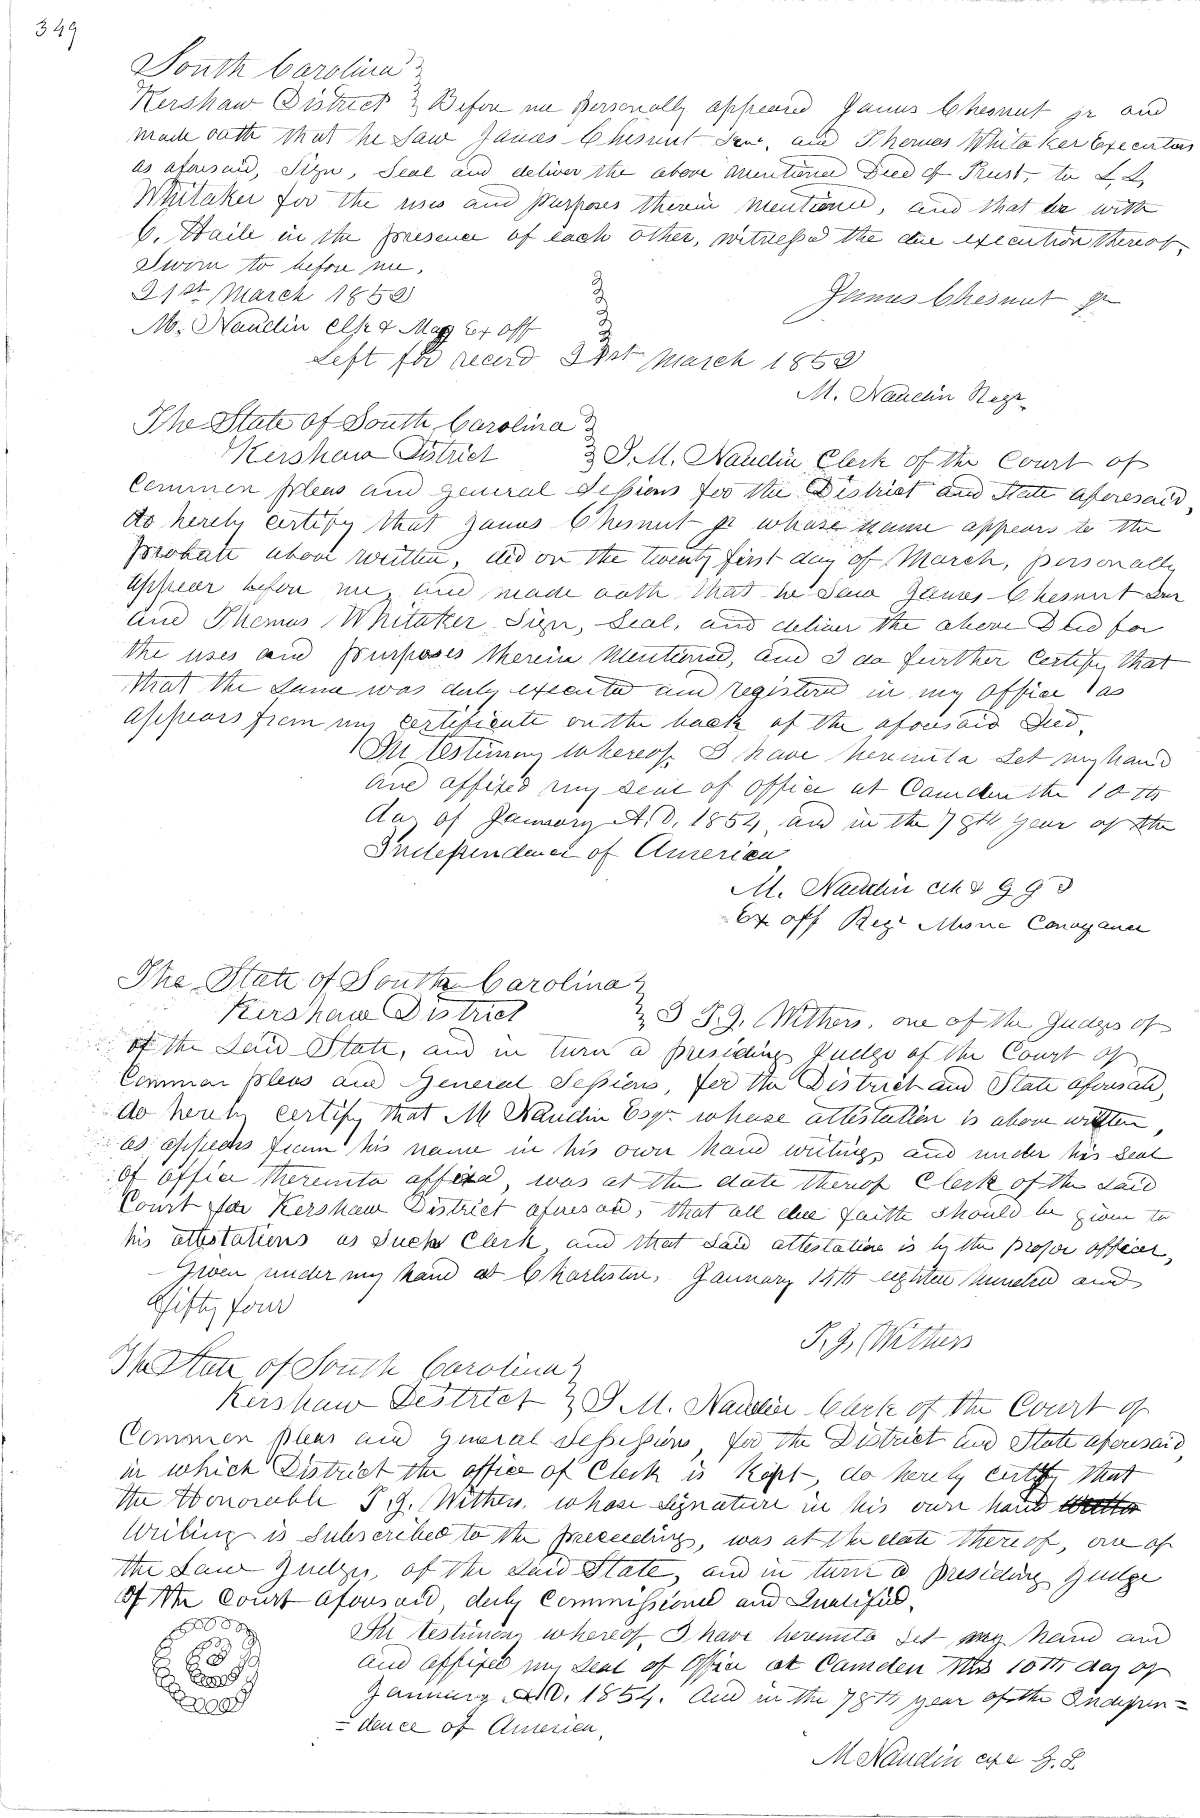 349
South Carolina
Kershaw District } Before me personally appeared James Chesnut jr and
made oath that he saw James Chesnut Senr. and Thomas Whitaker Executors
as aforesaid, Sign, Seal and deliver the above mentioned Deed of Trust, to L. L.
Whitaker for the uses and purposes therein mentioned, and that he with
C. Haile in the presence of each other, witnessed the due execution thereof.
Sworn to before me.
21st March 1852
James Chesnut jr
M. Naudin clk & Mag Ex off
Left for record 21st March 1852
M. Naudin Regr
The State of South Carolina }
Kershaw District } I. M. Naudin Clerk of the Court of
Common pleas and general Sessions for the District and State aforesaid,
do hereby certify that James Chesnut jr whose name appears to the
probate above written, did on the twenty first day of March, personally
appear before me, and made oath that he saw James Chesnut Snr
and Thomas Whitaker Sign, Seal, and deliver the above Deed for
the uses and purposes therein mentioned, and I do further certify that
that the same was duly executed and registered in my office as
appears from my certificate on the back of the aforesaid Deed.
In testimony whereof, I have hereunto Set my hand
and affixed my seal of office at Camden the 10th
day of January A.D. 1854, and in the 78th year of the
Independence of America
M. Naudin clk & G G S
Ex off Regr Mesne Conveyance
The State of South Carolina }
Kershaw District } I T. J. Withers, one of the Judges of
of the Said State, and in turn a presiding Judge of the Court of
Common pleas and General Sessions, for the District and State aforesaid,
do hereby certify that M Naudin Esqr. whose attestation is above written,
as appears from his name in his own hand writing, and under his seal
of office thereunto affixed, was at the date thereof Clerk of the Said
Court for Kershaw District aforesaid, that all due faith should be given to
his attestations as Such Clerk, and that Said attestation is by the proper officer,
Given under my hand at Charleston, January 14th eighteen hundred and
fifty four
T. J. Withers
The State of South Carolina }
Kershaw District } I M. Naudin Clerk of the Court of
Common pleas and general Sessions, for the District and State aforesaid,
in which District the office of Clerk is kept, do hereby certify that
the Honorable T. J. Withers, whose signature in his own hand
Writing is Subscribed to the preceeding, was at the date thereof, one of
the Law Judges, of the Said State, and in turn a presiding Judge
of the Court aforesaid, duly Commissioned and Qualified.
In testimony whereof, I have hereunto Set my hand and
and affixed my Seal of Office at Camden this 10th day of
January A.D. 1854. And in the 78th year of the Indepen=
=dence of America.
M Naudin G. S.